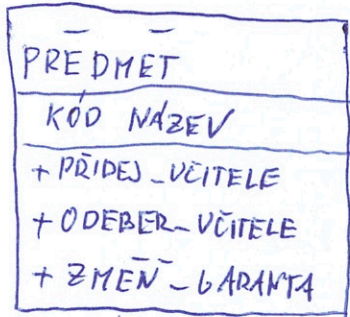 PŘEDMĚT
KÓD NÁZEV
+ PŘIDEJ_UČITELE
+ ODEBER_UČITELE
+ ZMEŇ_GARANTA